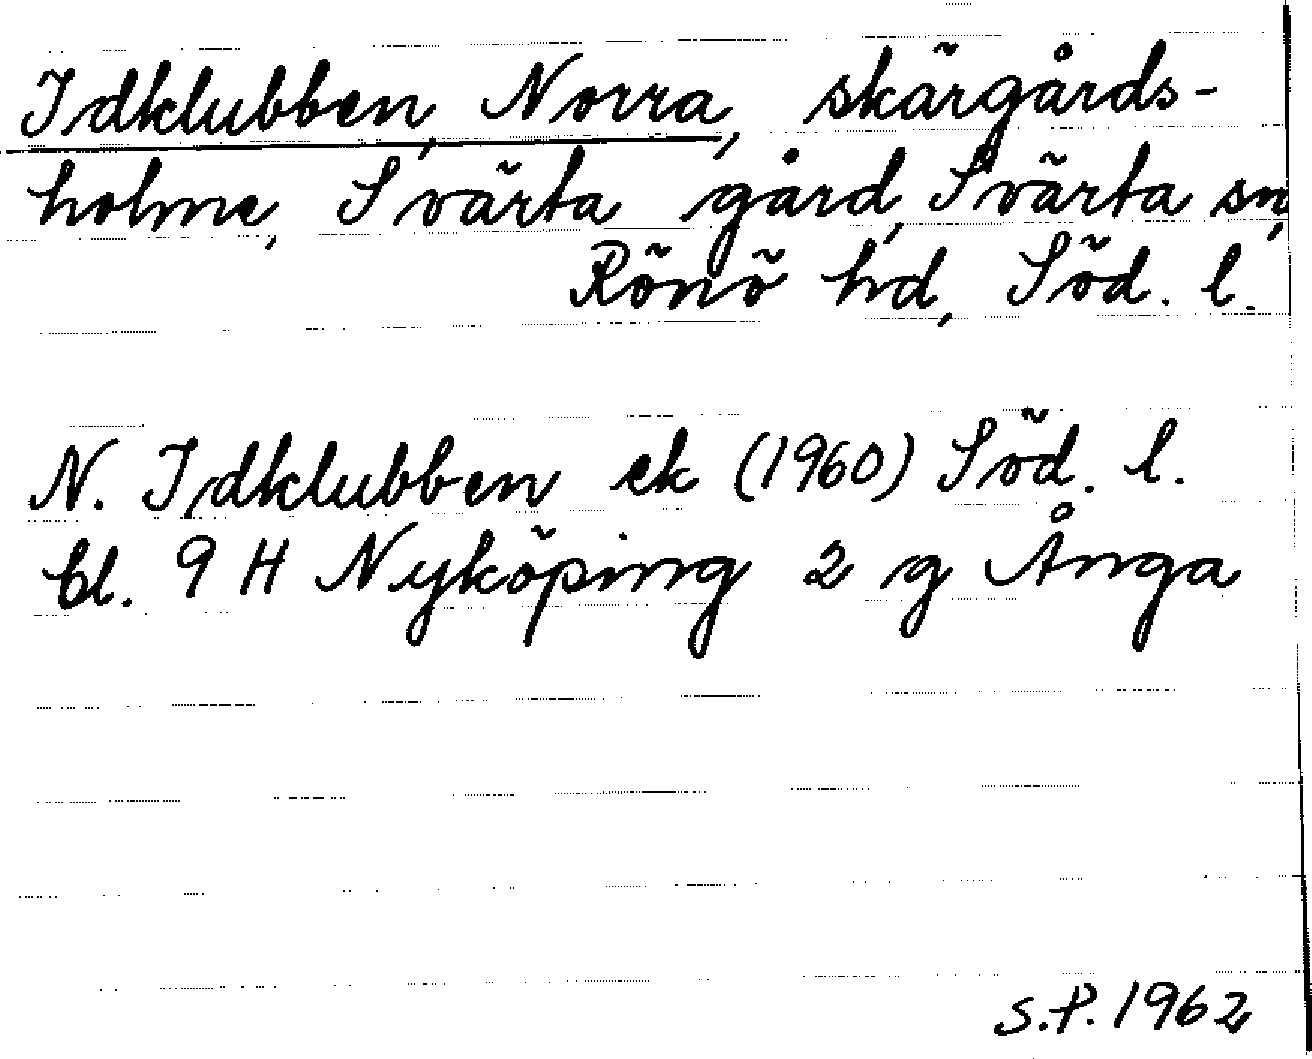 Idklubben, Norra, skärgårds-
holme, Svärta gård, Svärta sn,
Rönö hd, Söd. l.
N. Idklubben ek (1960) Söd. l.
bl. 9 H Nyköping 2 g Ånga
S.P. 1962